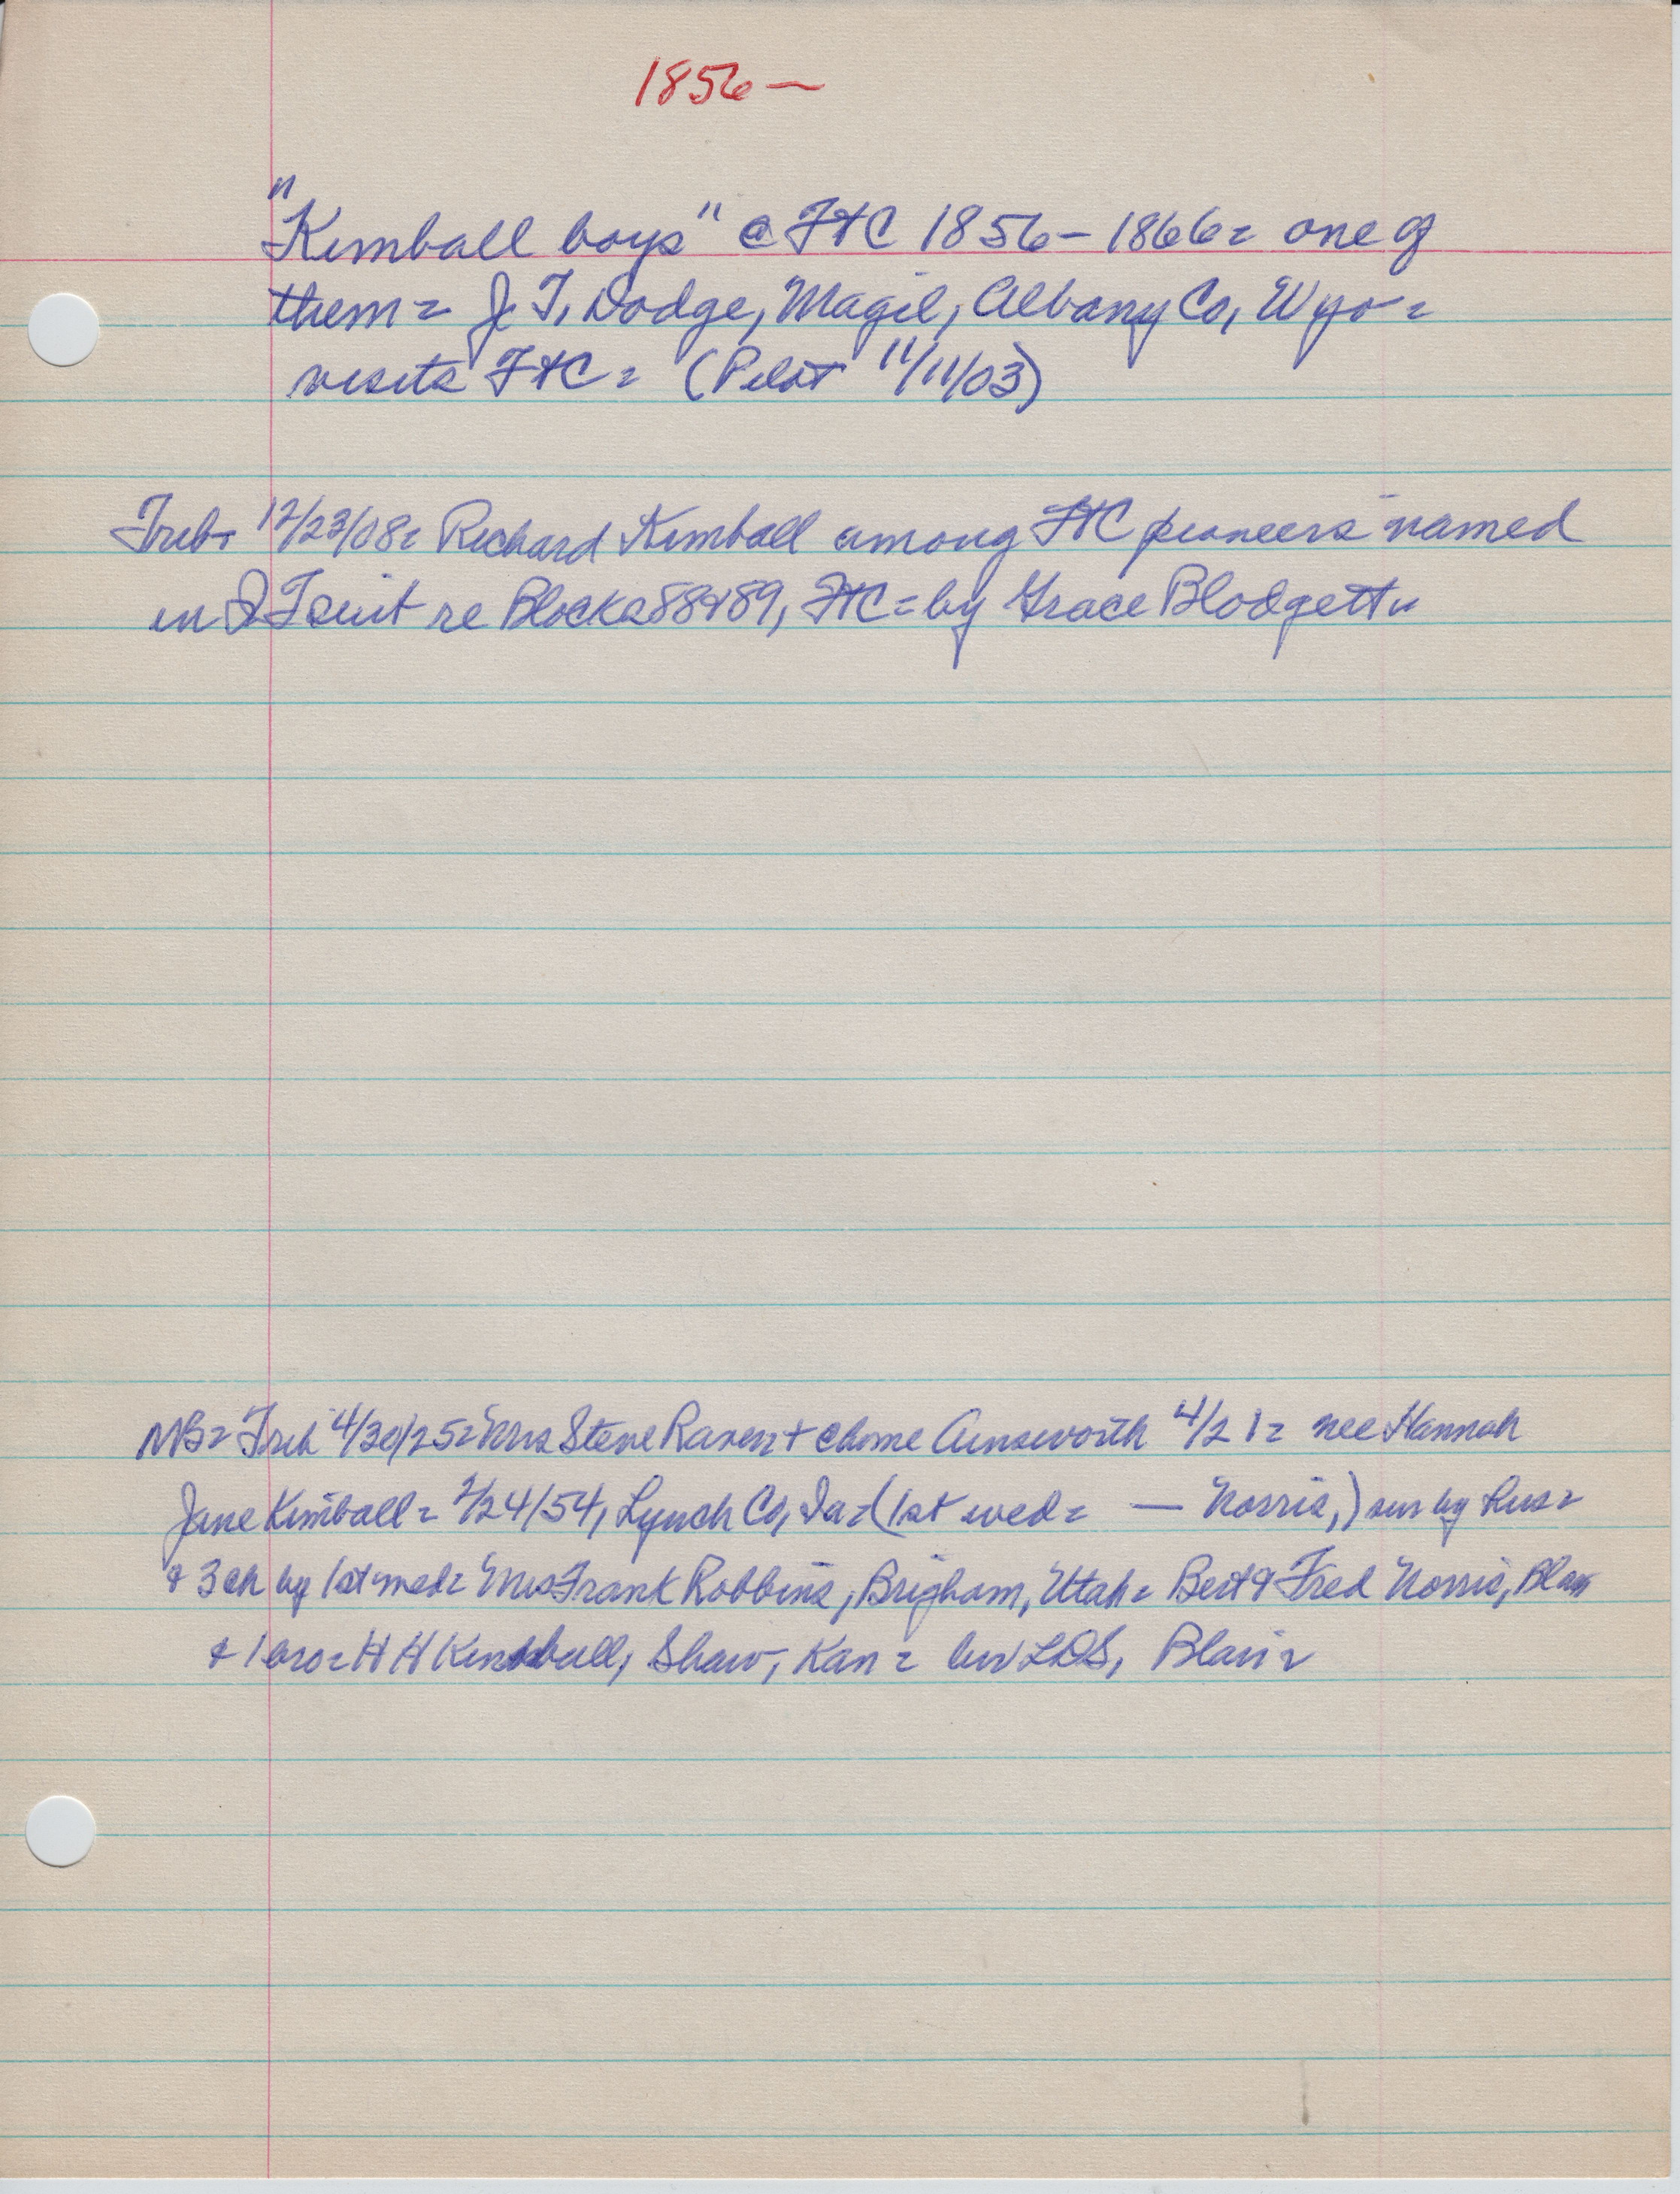 1856—
"Kimball boys" @ FtC 1856-1866= one of
them= J. T. Dodge, Magil, Albany Co, Wyo=
visits FtC= (Pilot 11/11/03)
Trib- 12/23/08= Richard Kimball among FtC pioneers named
in suit re Blocks 88&89, FtC= by Grace Blodgett=
NB= Trib 4/30/25= Mrs Steve Raven + @ home Ainsworth 4/21= nee Hannah
Jane Kimball= 2/24/54, Lynch Co, Ia= (1st wed= — Norris,) sur by hus=
& 3 ch by 1st wed= Mrs Frank Robbins, Brigham, Utah= Bert & Fred Norris, Blair
& 1 bro= H H Kimball, Shaw, Kan= bur LDS, Blair=